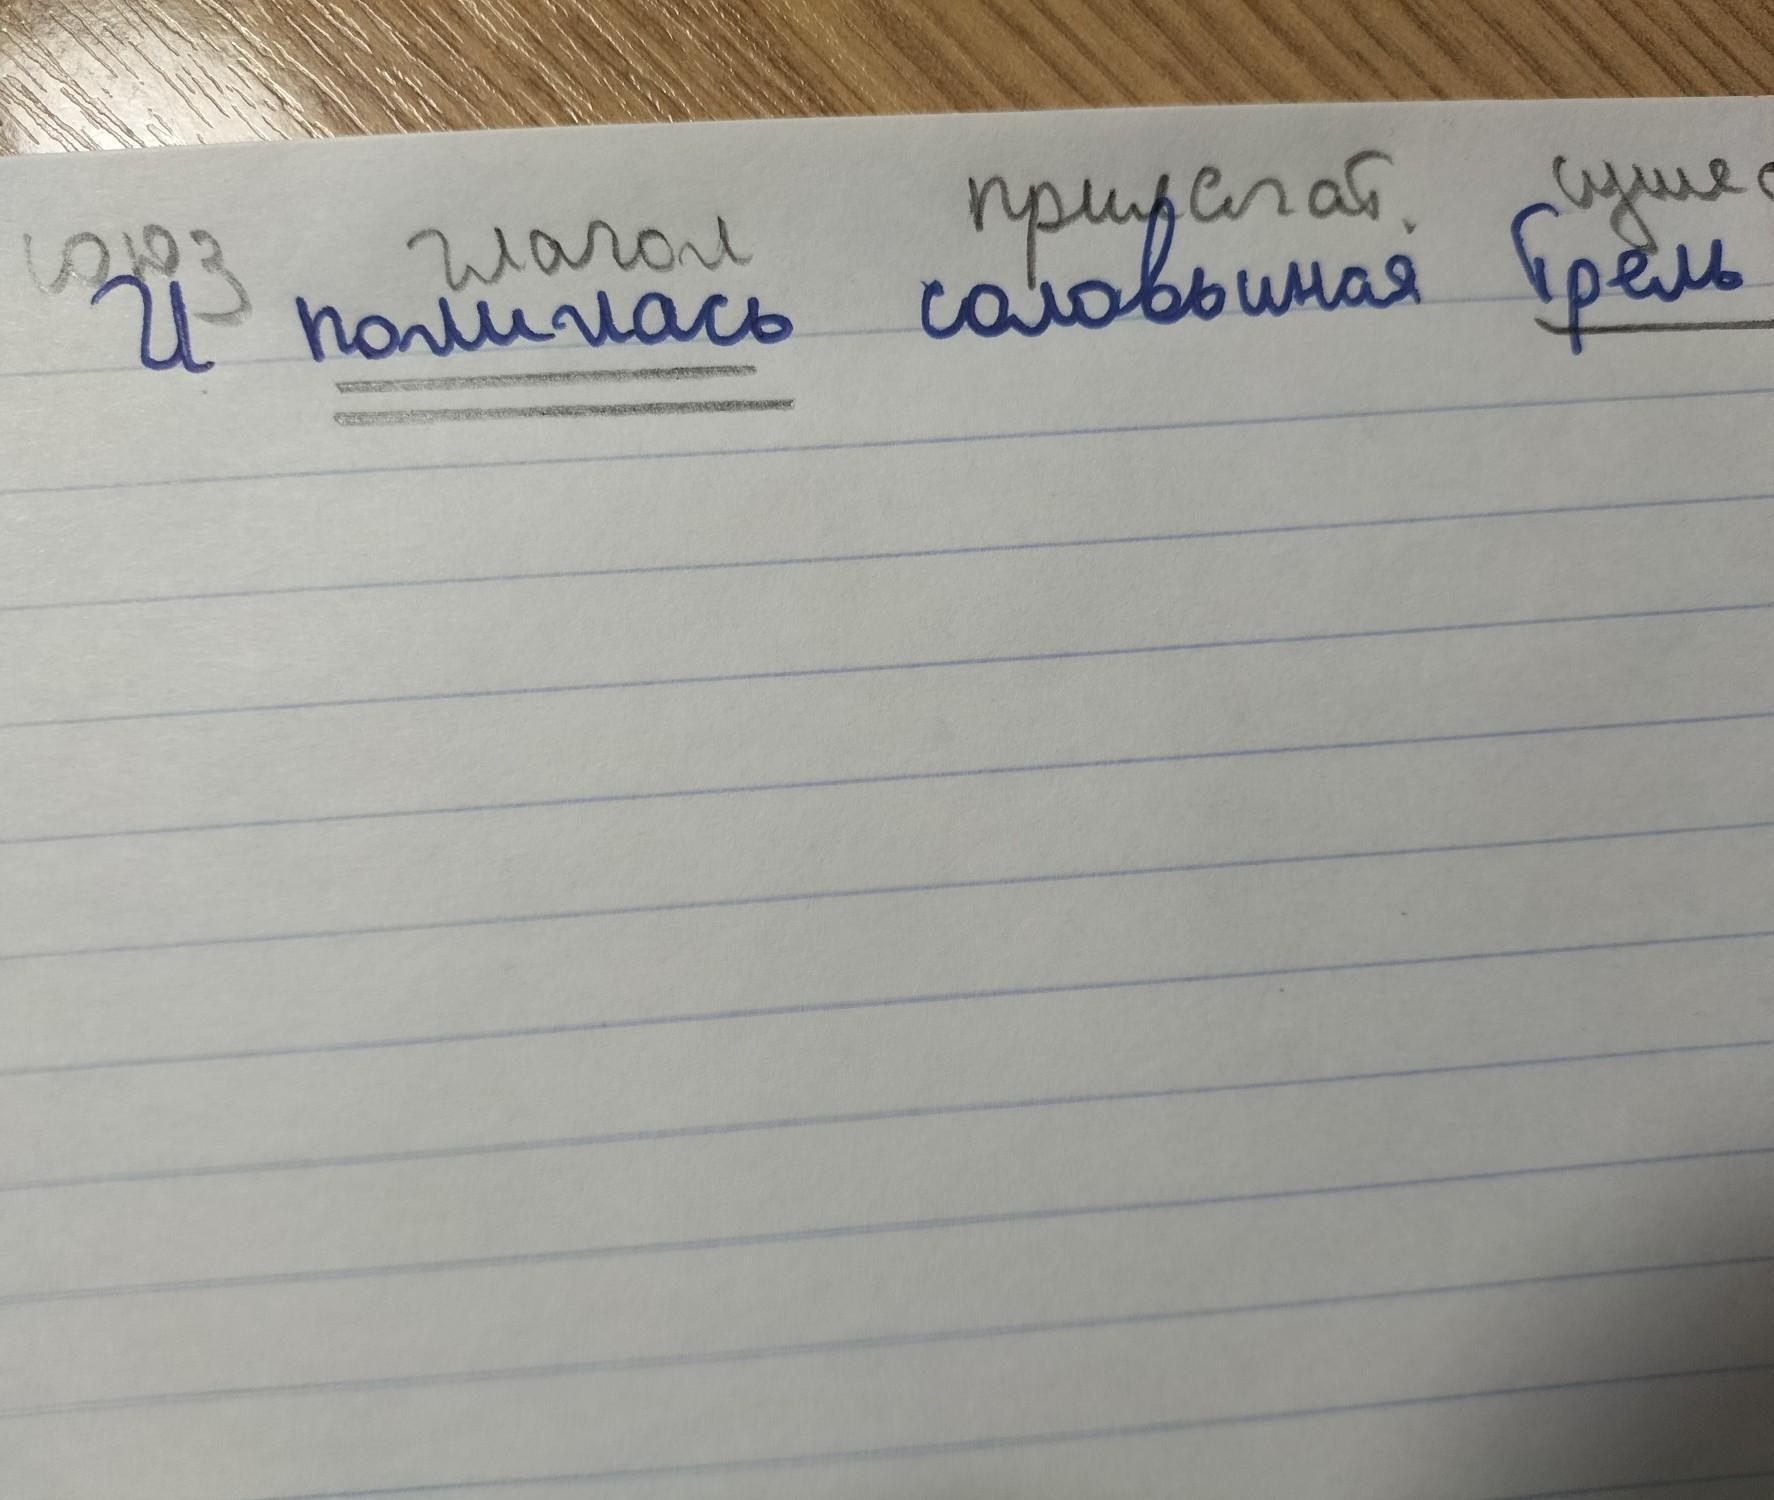 союз глагол прилагат. сущес
И полилась соловьиная трель